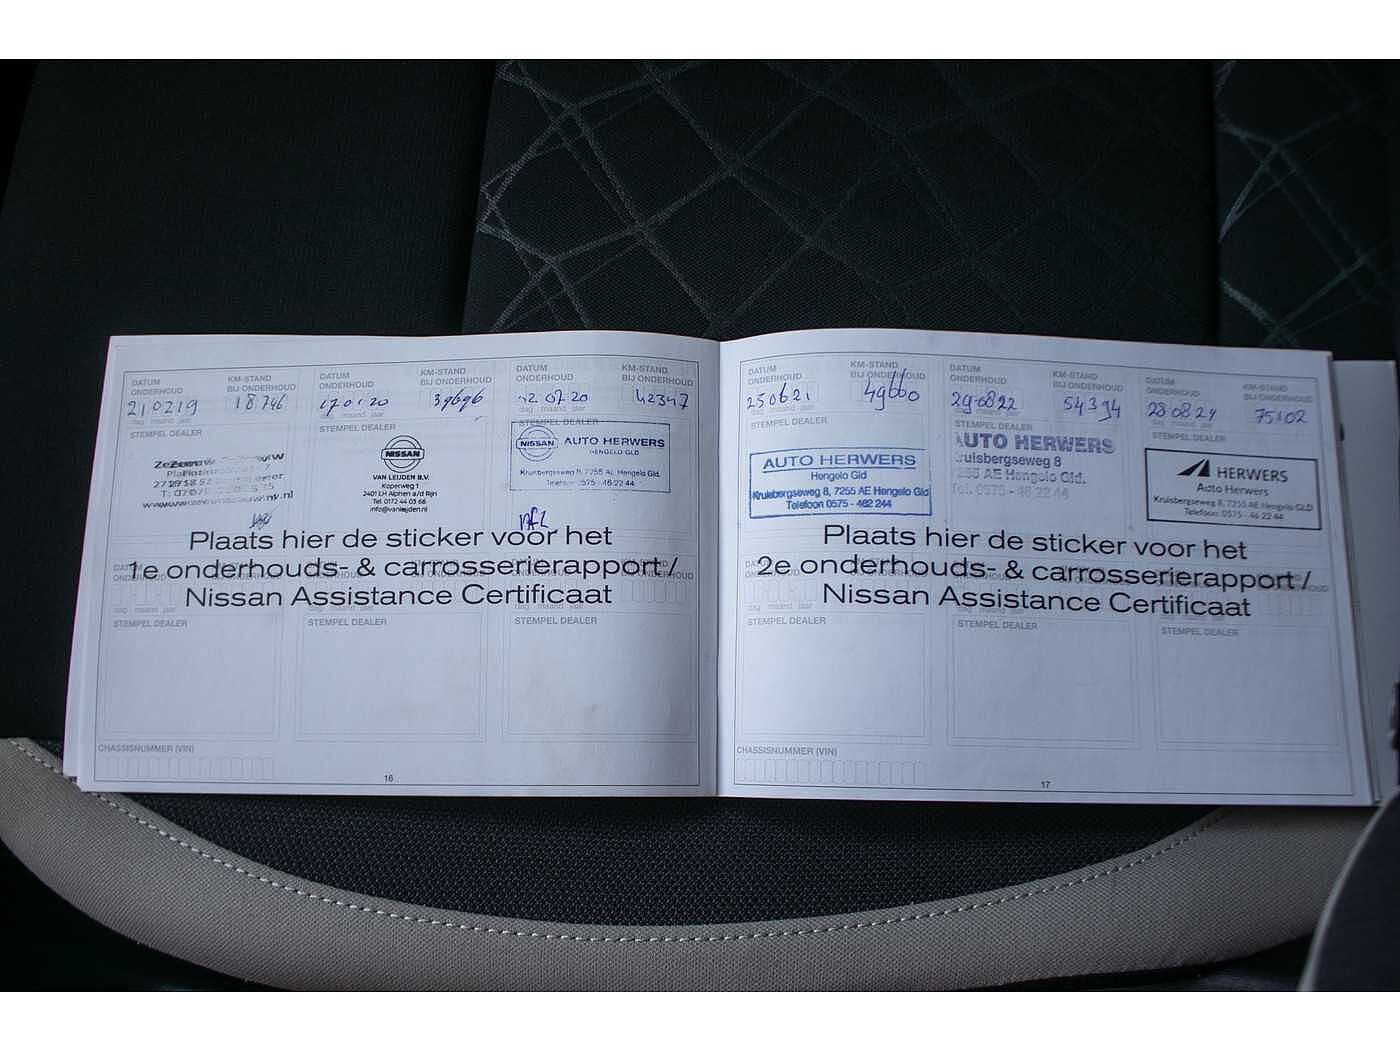 DATUM ONDERHOUD
KM-STAND BIJ ONDERHOUD
210219
18746
dag maand jaar
STEMPEL DEALER
DATUM ONDERHOUD
KM-STAND BIJ ONDERHOUD
170120
39696
dag maand jaar
STEMPEL DEALER
NISSAN
VAN LEIJDEN B.V.
Koperweg 1
2401 LH Alphen a/d Rijn
Tel. 0172 44 03 66
info@vanleijden.nl
DATUM ONDERHOUD
KM-STAND BIJ ONDERHOUD
020720
42347
dag maand jaar
STEMPEL DEALER
NISSAN AUTO HERWERS
HENGELO GLD
Kruisbergseweg 8, 7255 AE Hengelo Gld.
Telefoon 0575 - 46 22 44
Plaats hier de sticker voor het
1e onderhouds- & carrosserierapport /
Nissan Assistance Certificaat
dag maand jaar
STEMPEL DEALER
STEMPEL DEALER
STEMPEL DEALER
CHASSISNUMMER (VIN)
16
DATUM ONDERHOUD
KM-STAND BIJ ONDERHOUD
250621
49660
dag maand jaar
STEMPEL DEALER
AUTO HERWERS
Hengelo Gld
Kruisbergseweg 8, 7255 AE Hengelo Gld
Telefoon 0575 - 462 244
DATUM ONDERHOUD
KM-STAND BIJ ONDERHOUD
290822
54394
dag maand jaar
STEMPEL DEALER
AUTO HERWERS
Kruisbergseweg 8
7255 AE Hengelo Gld.
Tel. 0575 - 46 22 44
DATUM ONDERHOUD
KM-STAND BIJ ONDERHOUD
280824
75102
dag maand jaar
STEMPEL DEALER
HERWERS
Auto Herwers
Kruisbergseweg 8, 7255 AE Hengelo GLD
Telefoon: 0575 - 46 22 44
Plaats hier de sticker voor het
2e onderhouds- & carrosserierapport /
Nissan Assistance Certificaat
dag maand jaar
STEMPEL DEALER
STEMPEL DEALER
STEMPEL DEALER
CHASSISNUMMER (VIN)
17